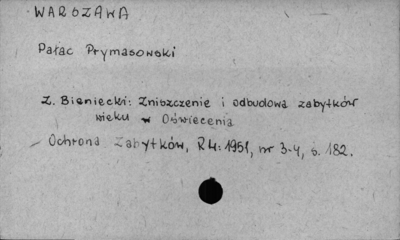 WARSZAWA
Pałac Prymasowski
Z. Bieniecki: Zniszczenie i odbudowa zabytków
wieku w Oświecenia
Ochrona Zabytków, R 4: 1951, nr 3-4, s. 182.